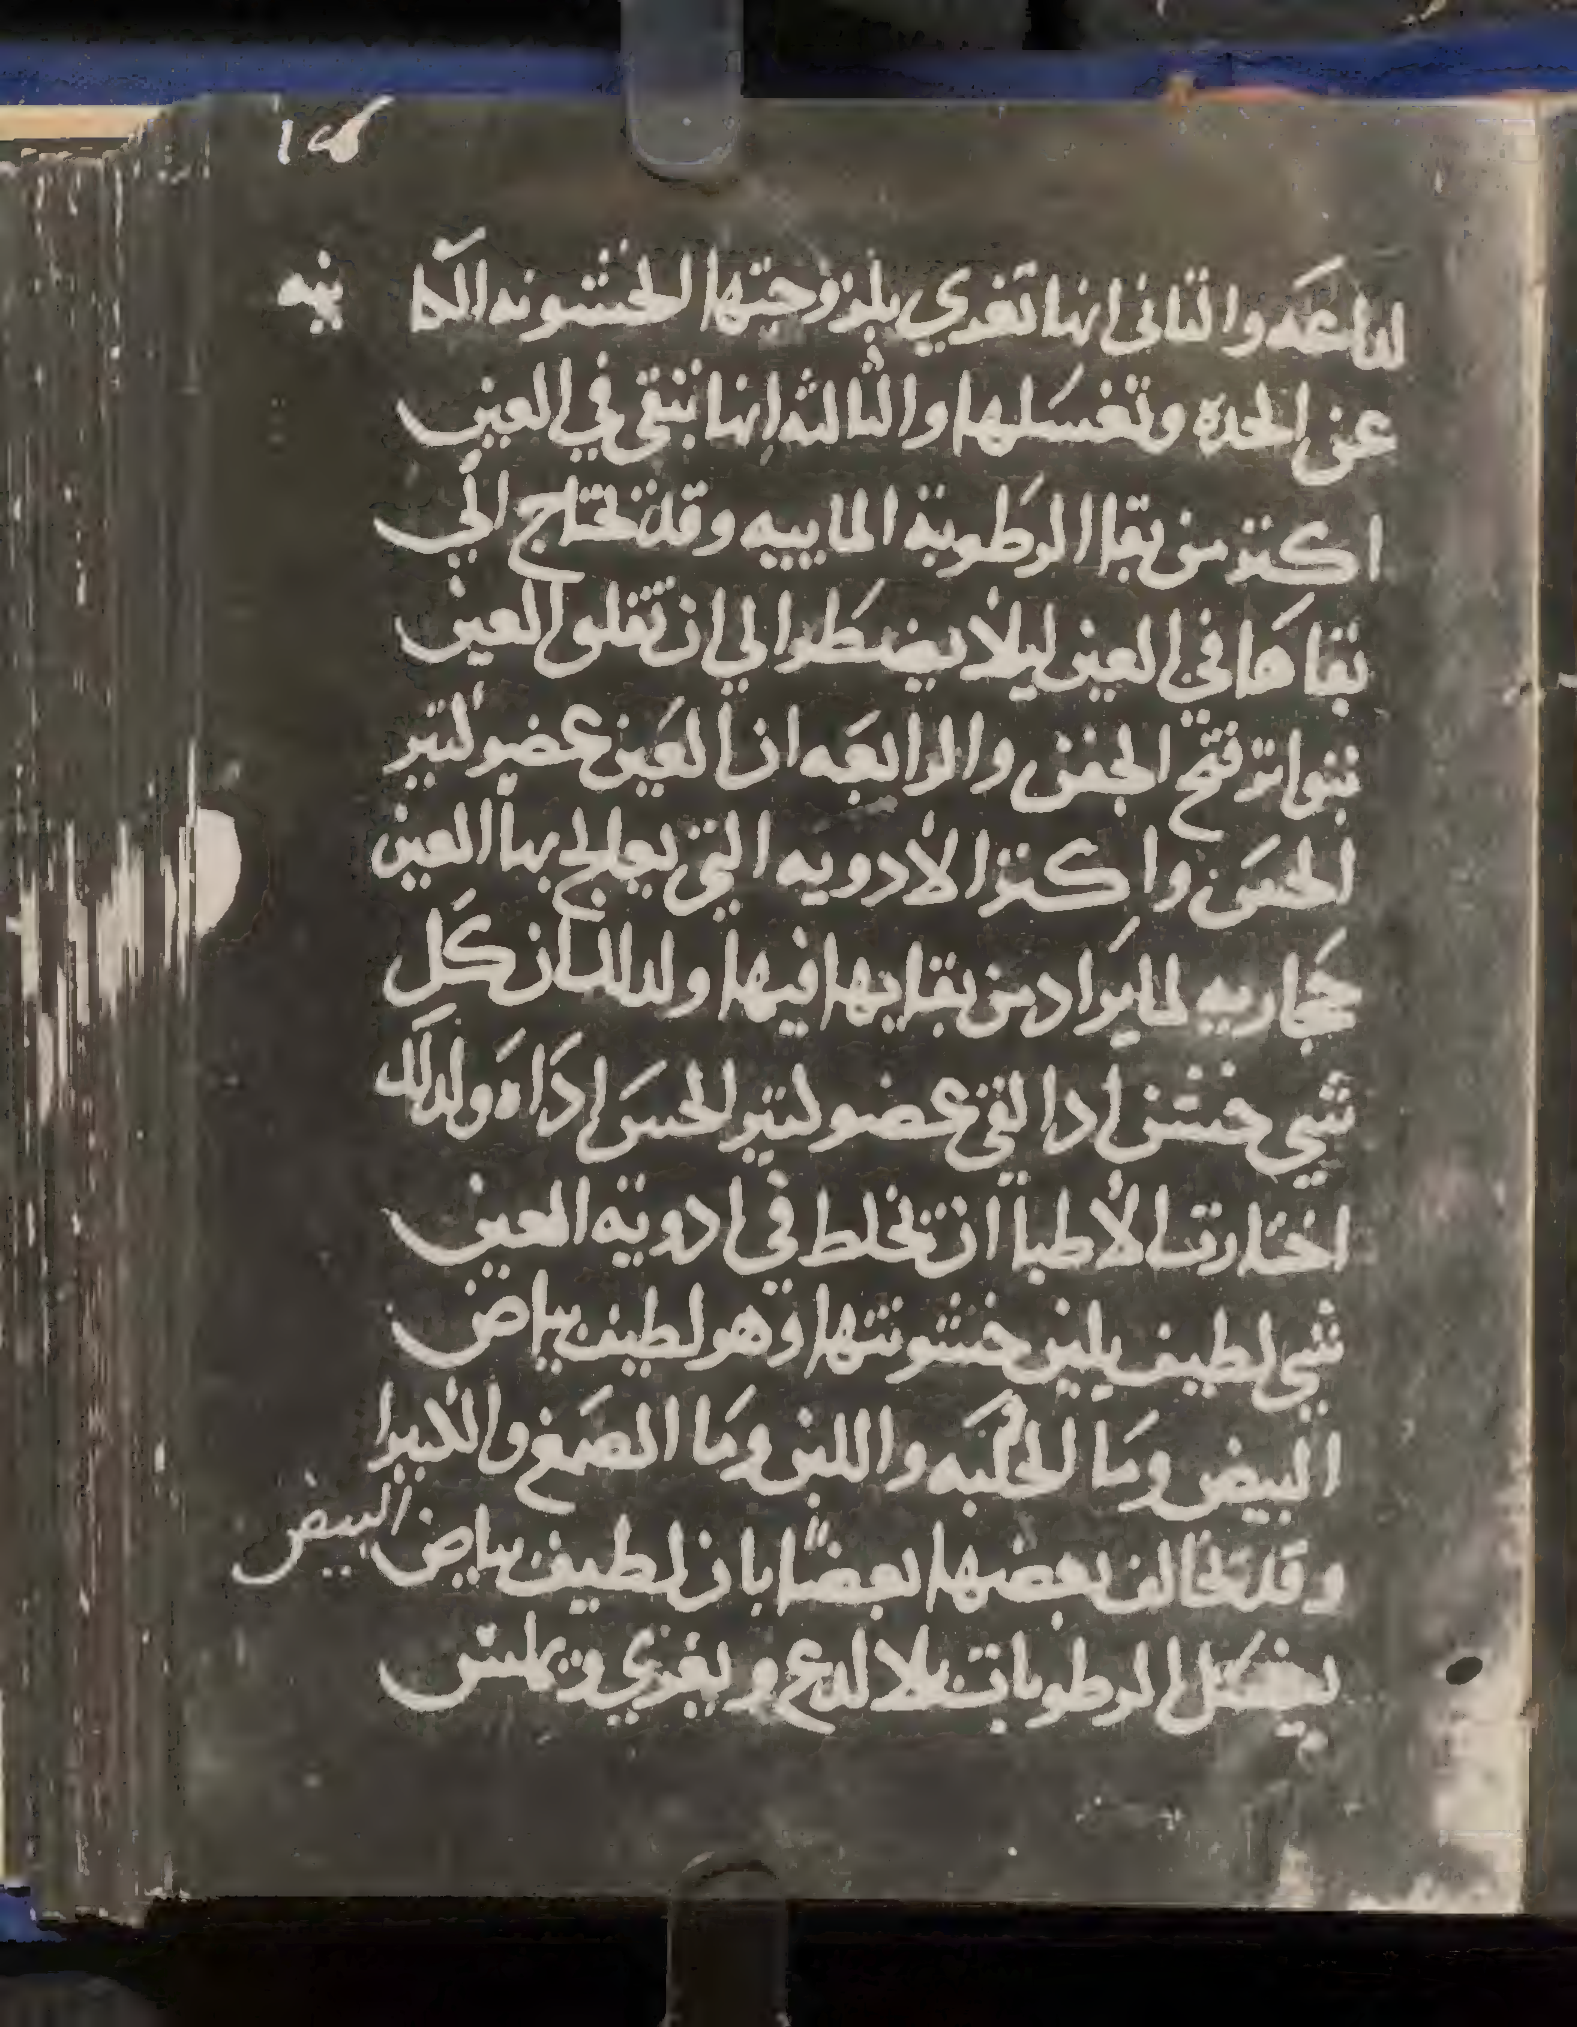 لداعه والثانى انها تغري بلزوجتها الخشونه الكا ينه
عن الحده وتغسلها والثالثه انها تبقي في العين
اكثر من بقا الرطوبة الماييه وقد تحتاج الي
بقاها في العين ليلا يضطر الي ان تقلق العين
بتواتر فتح الجفن والرابعه ان العين عضو كثير
الحس واكثر الادويه التي يعالج بها العين
حجاريه لما يراد من بقايها فيها ولدلك ان كل
شي خشن ادا لقي عضو كثير الحس اداه ولدلك
اختارت الاطبا ان تخلط في ادوية العين
شي لطيف يلين خشونتها وهو لطيف بياض
البيض وما الحلبه واللبن وما الصمغ والكثيرا
وقد تخالف بعضها بعضا بان لطيف بياض البيض
يغسل الرطوبات بلا لدع ويغري ويملس